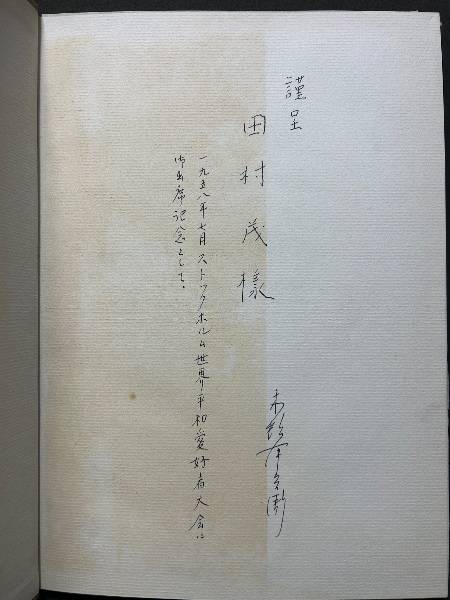 謹呈
田村茂様
一九五八年七月ストックホルム世界平和愛好者大会に
御出席記念として。